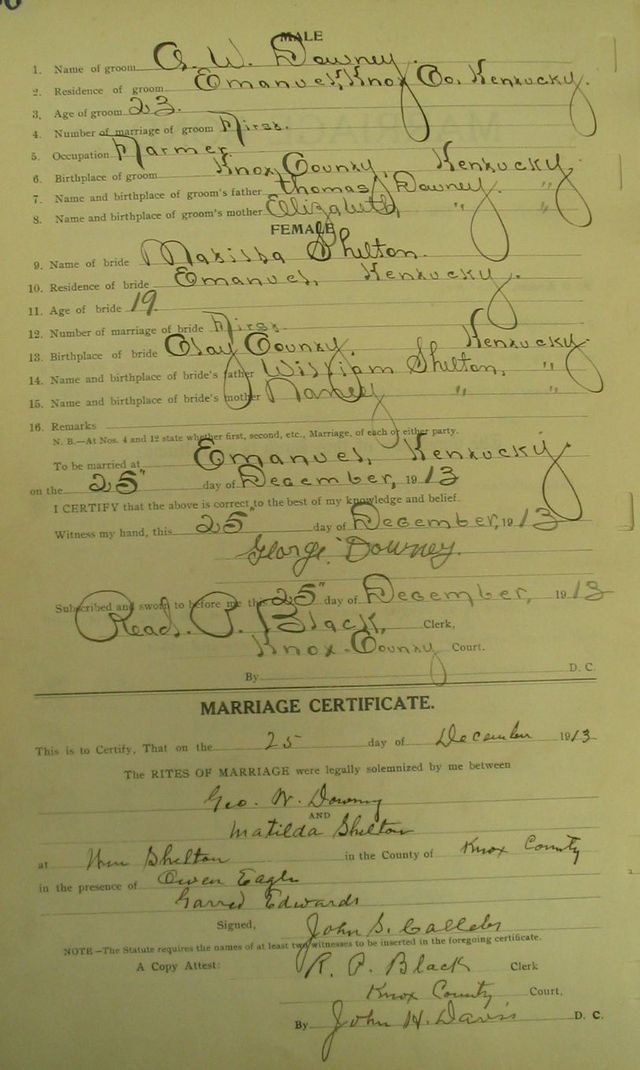 MALE
1. Name of groom G. W. Downey.
2. Residence of groom Emanuel, Knox Co. Kentucky.
3. Age of groom 23.
4. Number of marriage of groom First.
5. Occupation Farmer
6. Birthplace of groom Knox County, Kentucky
7. Name and birthplace of groom's father Thomas Downey. "
8. Name and birthplace of groom's mother Elizabeth, " "
FEMALE
9. Name of bride Matilda Shelton.
10. Residence of bride Emanuel, Kentucky.
11. Age of bride 19.
12. Number of marriage of bride First.
13. Birthplace of bride Clay County, Kentucky
14. Name and birthplace of bride's father William Shelton, "
15. Name and birthplace of bride's mother Nancy " "
16. Remarks
N. B.—At Nos. 4 and 12 state whether first, second, etc., Marriage, of each of either party.
To be married at Emanuel, Kentucky.
on the 25" day of December, 1913
I CERTIFY that the above is correct to the best of my knowledge and belief.
Witness my hand, this 25" day of December, 1913
George Downey.
Subscribed and sworn to before me this 25" day of December, 1913
Read. P. Black, Clerk,
Knox-County Court.
By D. C.
MARRIAGE CERTIFICATE.
This is to Certify, That on the 25 day of December 1913
The RITES OF MARRIAGE were legally solemnized by me between
Geo. W. Downey
AND
Matilda Shelton
at Wm Shelton in the County of Knox County
in the presence of Owen Eagle
Garred Edwards
Signed, John S. Callebs
NOTE—The Statute requires the names of at least two witnesses to be inserted in the foregoing certificate.
A Copy Attest: R. P. Black Clerk
Knox County Court,
By John H. Davis D. C.